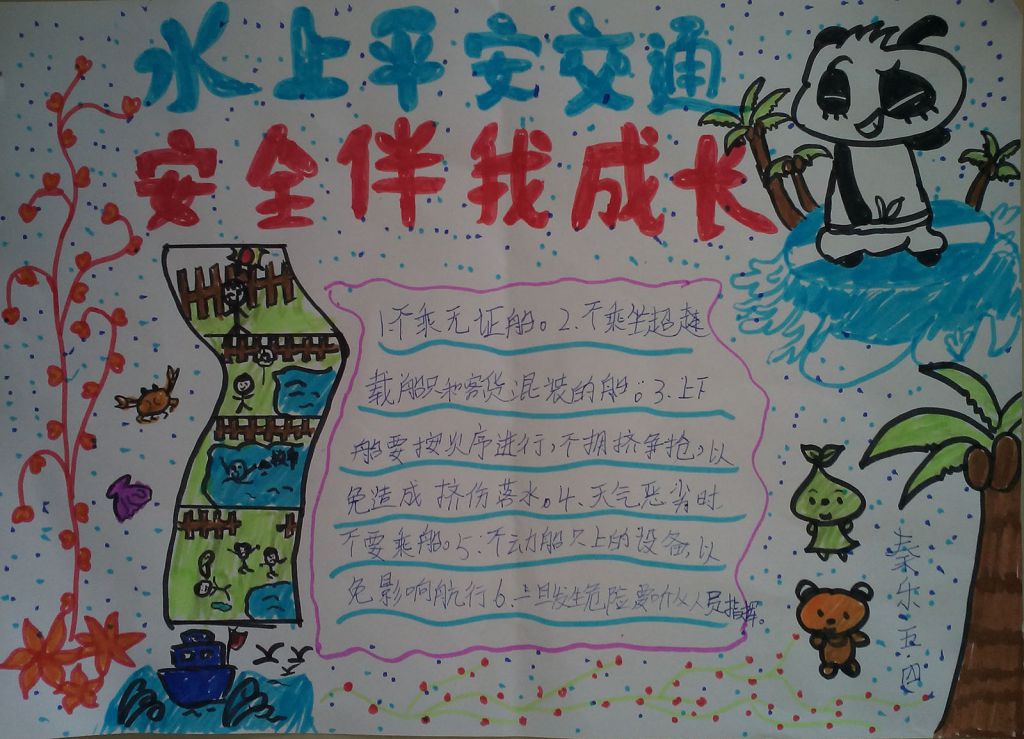 水上平安交通
安全伴我成长
1不乘无证船。2.不乘坐超越
载船只和客货混装的船。3.上下
船要按次序进行,不拥挤争抢,以
免造成挤伤落水。4、天气恶劣时
不要乘船。5、不动船只上的设备,以
免影响航行6、一旦发生危险要听从人员指挥。
秦乐五四